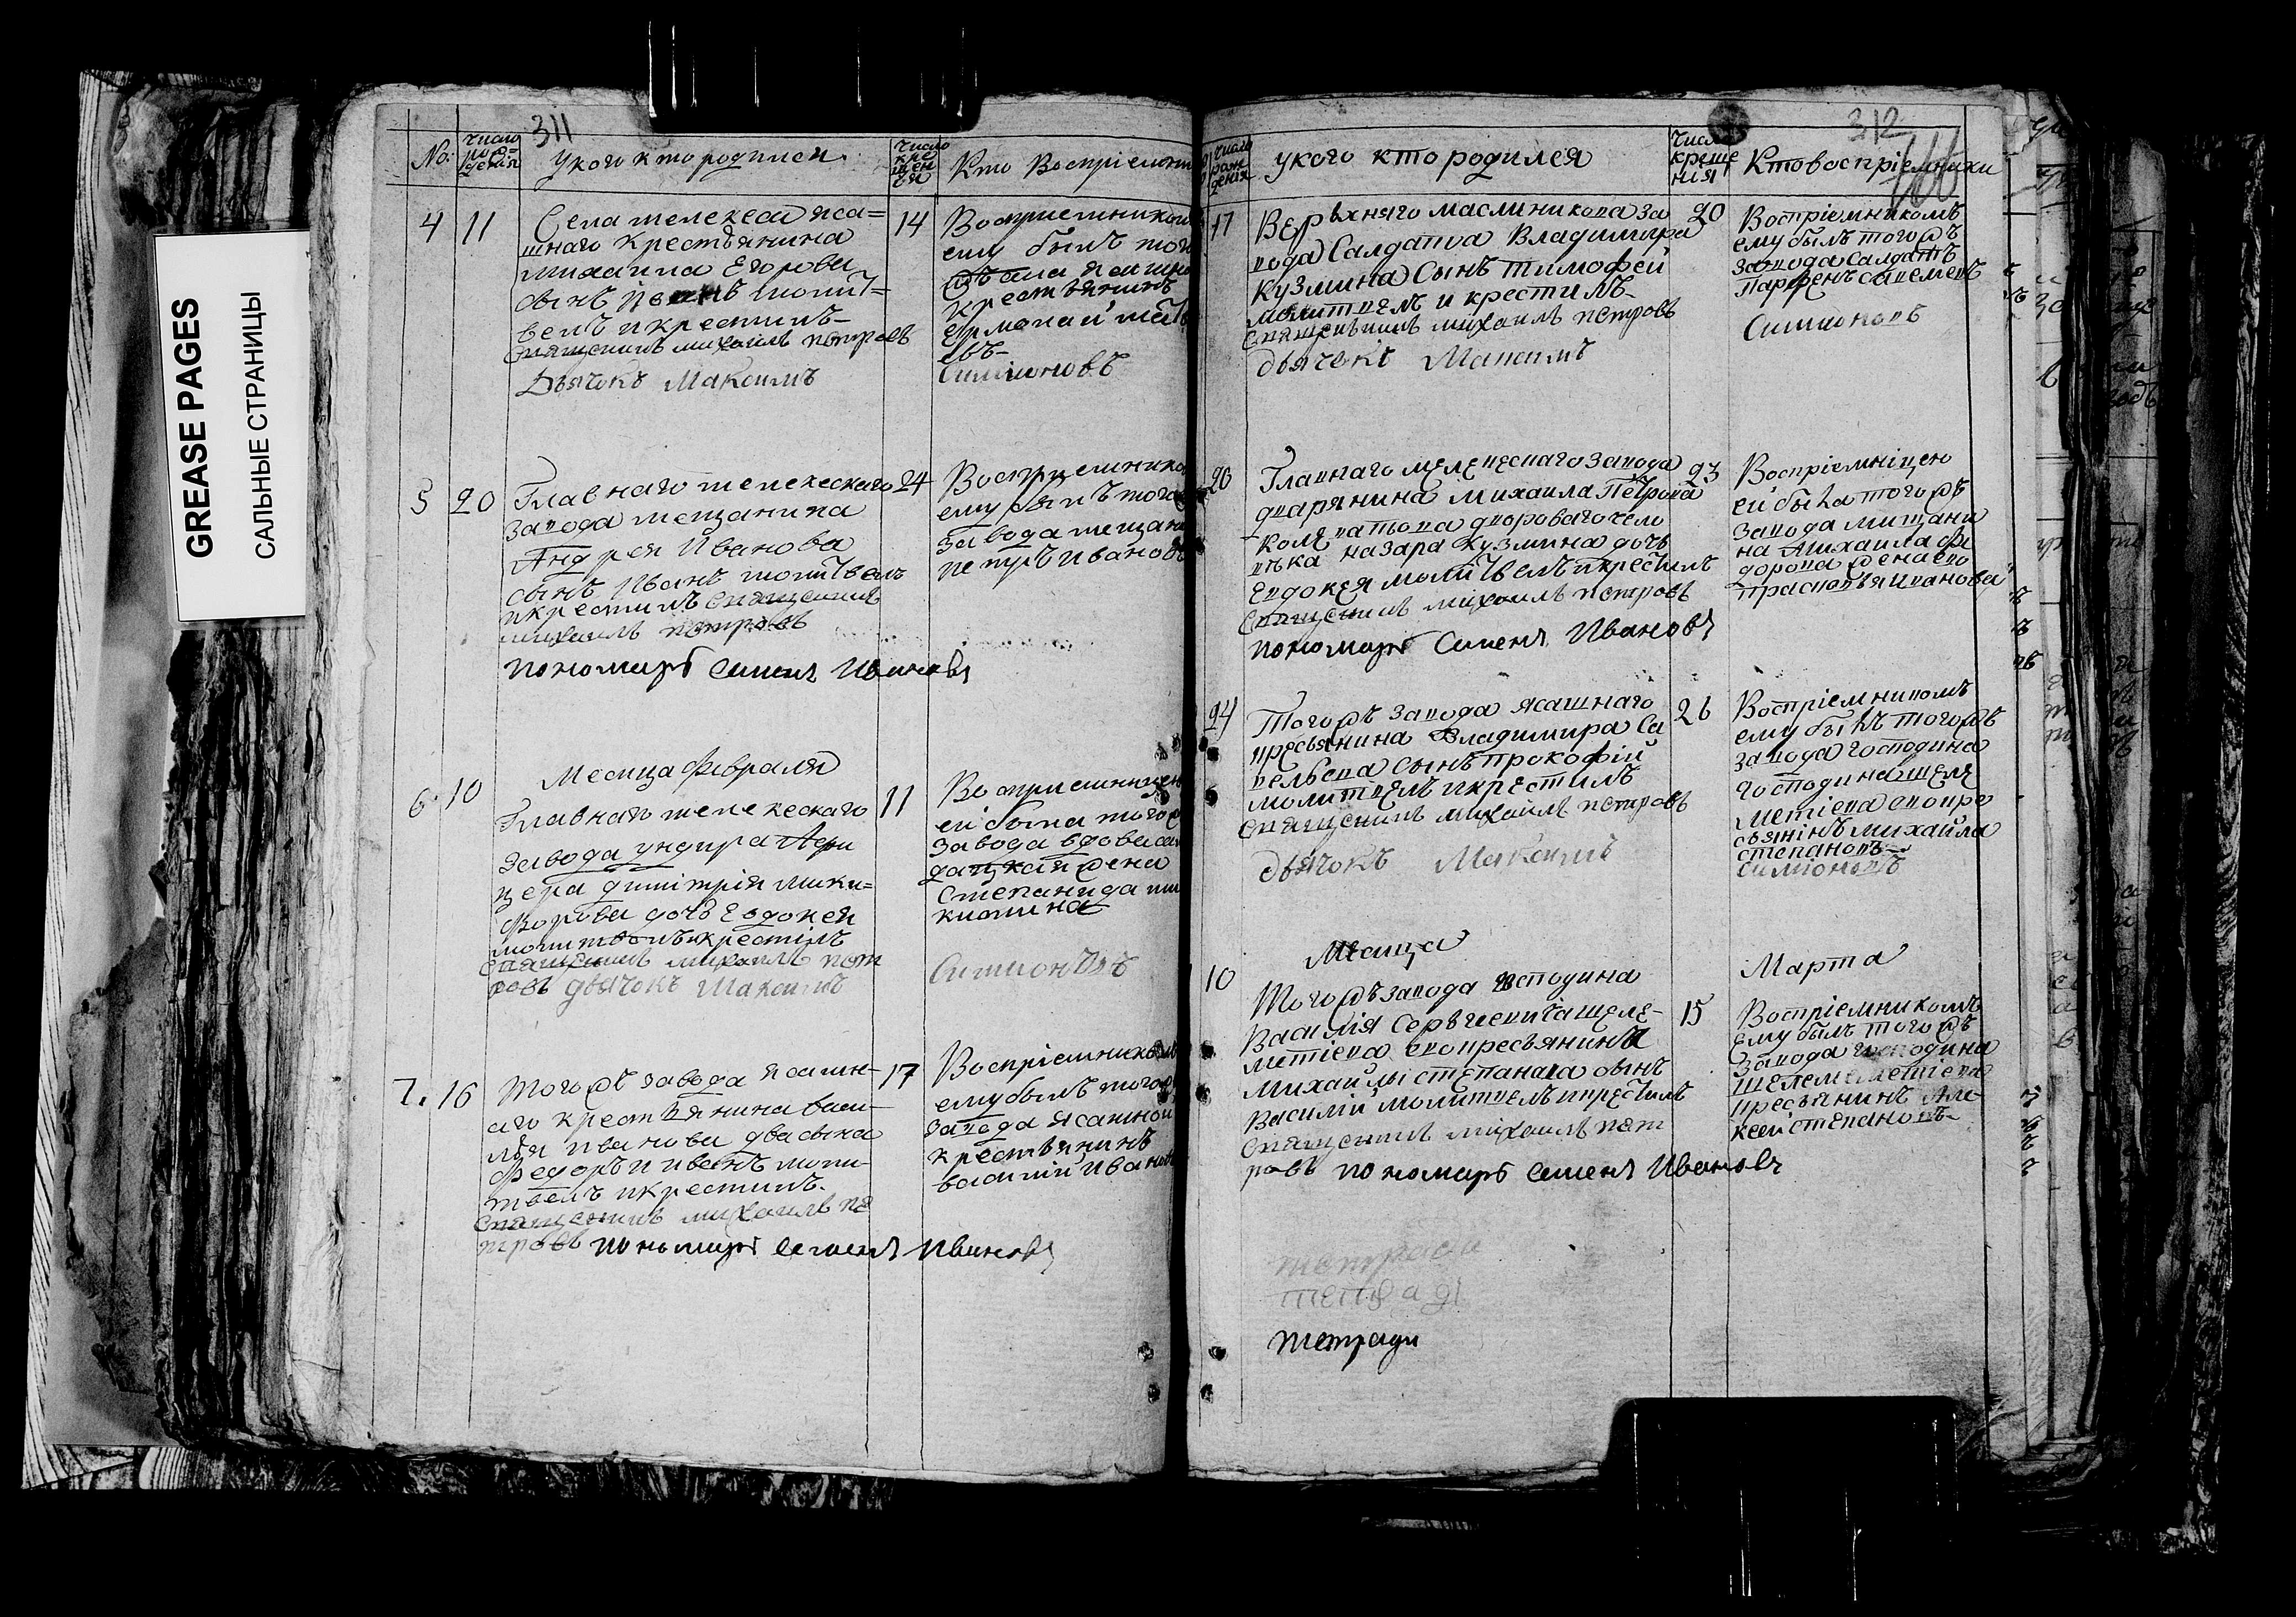 GREASE PAGES
САЛЬНЫЕ СТРАНИЦЫ
311
No:
число рож=дения
у кого кто родился
число кре щен ия
Кто Восприемн
4
11
Села мелекеса яса=
шнаго крестьянина
михаила Егорова
сынъ иванъ молит=
велъ и крестилъ
Священникъ михаилъ петровъ
Дьячокъ Максимъ
14
Восприемником
ему былъ того
крестьянинъ
ермолай
евъ
Симионовъ
5
20
Главнаго мелекескаго
завода мещанина
Андрея Иванова
сынъ Иванъ молитвелъ
и крестилъ Священникъ
михаилъ петровъ
пономарь Сименъ Ивановъ
24
Восприемнико
ему былъ того
завода мещан
петръ Ивановъ
Месяца Февраля
6
10
Главнаго мелекескаго
завода ундира Афи
цера димитрия ники=
форова дочь Евдокея
молитвелъ и крестилъ
Священникъ михаилъ пет
ровъ дьячокъ Максимъ
11
Восприемницею
ей была того
завода вдова сал
дацкая жена
Степанида ни
китина
Симионовъ
7.
16
Того жъ завода ясашн-
аго крестьянина васи-
лья иванова два сына
Федоръ и иванъ моли-
твелъ и крестилъ.
Священникъ михаилъ пе
тровъ пономарь Семенъ Ивановъ
17
Восприемником
ему былъ того
завода ясашной
крестьянинъ
василий Иванов
312
166
число рож дения
у кого кто родился
Число креще ния
Кто восприемники
17
Верьхняго маслиникова за
вода Салдатва Владимира
Кузмина Сынъ тимофей
молитвелъ и крестилъ
Священникъ михаилъ петровъ
дьячокъ Максимъ
20
Восприемникомъ
ему былъ того жъ
завода салдатъ
Парфенъ савелевъ
Симионовъ
20
Главнаго мелекескаго завода
дварянина Михаила Петрова
двороваго чело
века назара Кузмина дочь
Евдокея молитвелъ и крестилъ
Священникъ михаилъ петровъ
пономарь Сименъ Ивановъ
23
Восприемницею
ей была того жъ
завода мищани
на Михаила фе
дорова жена ево
Прасковья Иванова
24
Того жъ завода ясашнаго
кресьянина Владимира Са
вельева сынъ прокофий
молитвелъ и крестилъ
Священникъ михаилъ петровъ
дьячокъ Максимъ
26
Восприемникомъ
ему былъ того жъ
завода господина
господина шеле
метиева ево кре
сьянинъ михайла
степановъ
Симионовъ
Месяца
Марта
10
Того жъ завода господина
Василия Сергиевича шеле-
метиева ево кресьянина
Михайлы степанова сынъ
Василий молитвелъ и крестилъ
Священникъ михаилъ пет
ровъ пономарь Семенъ Ивановъ
15
Восприемникомъ
ему былъ того жъ
завода господина
шелеметиева
кресьянинъ Але
ксей степановъ
тетради
тетради
тетради